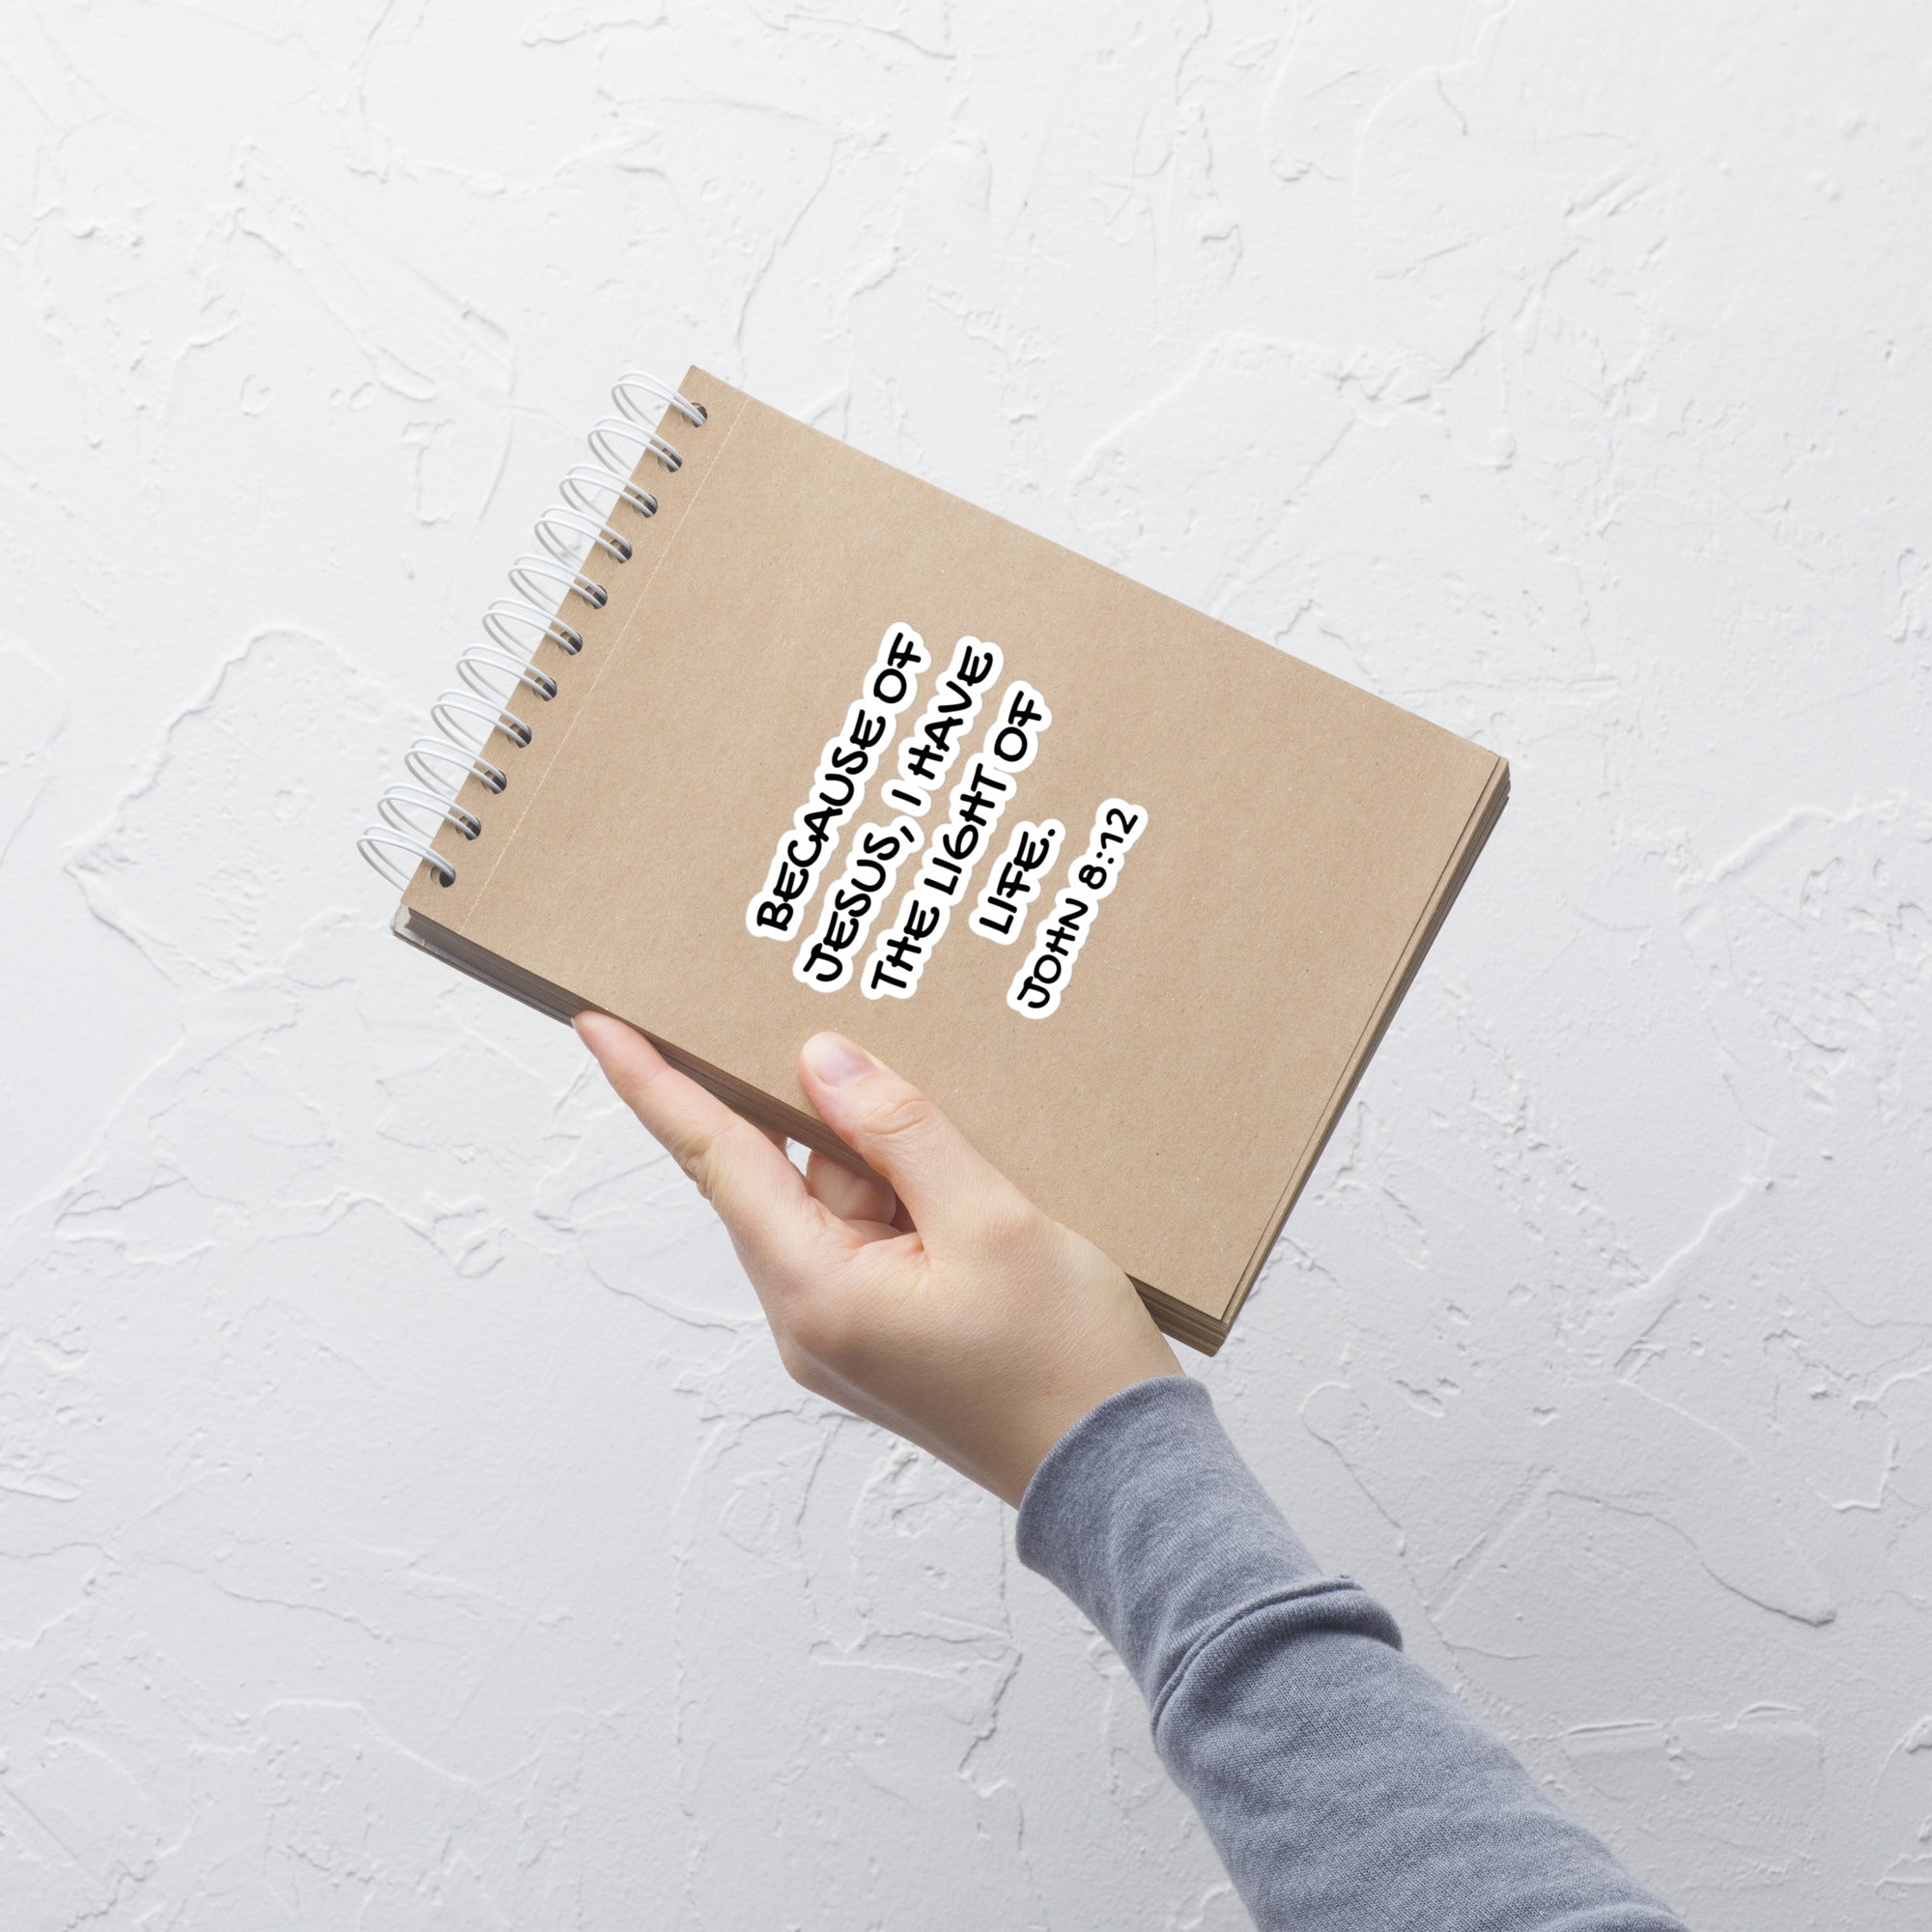 BECAUSE OF
JESUS, I HAVE
THE LIGHT OF
LIFE.
JOHN 8:12